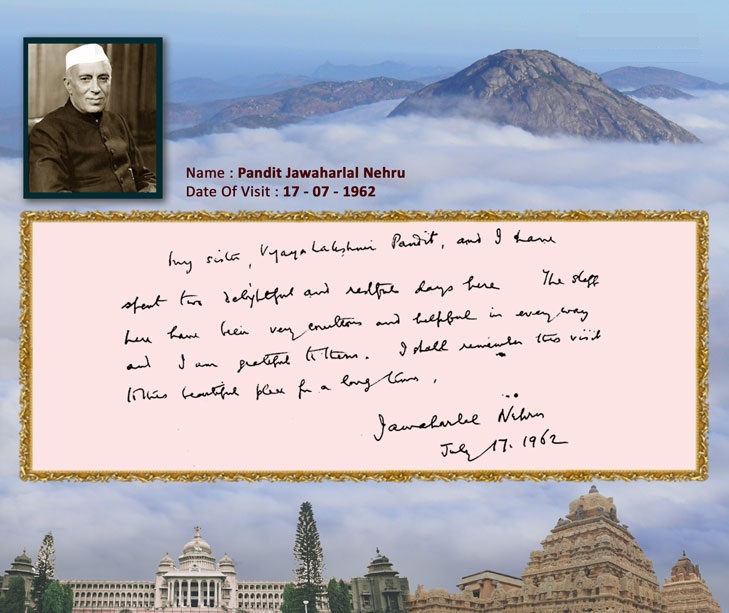 Name : Pandit Jawaharlal Nehru
Date Of Visit : 17 - 07 - 1962
My sister, Vijaya Lakshmi Pandit, and I have
spent two delightful and restful days here. The staff
here have been very courteous and helpful in every way
and I am grateful to them. I shall remember this visit
to this beautiful place for a long time.
Jawaharlal Nehru
July 17. 1962